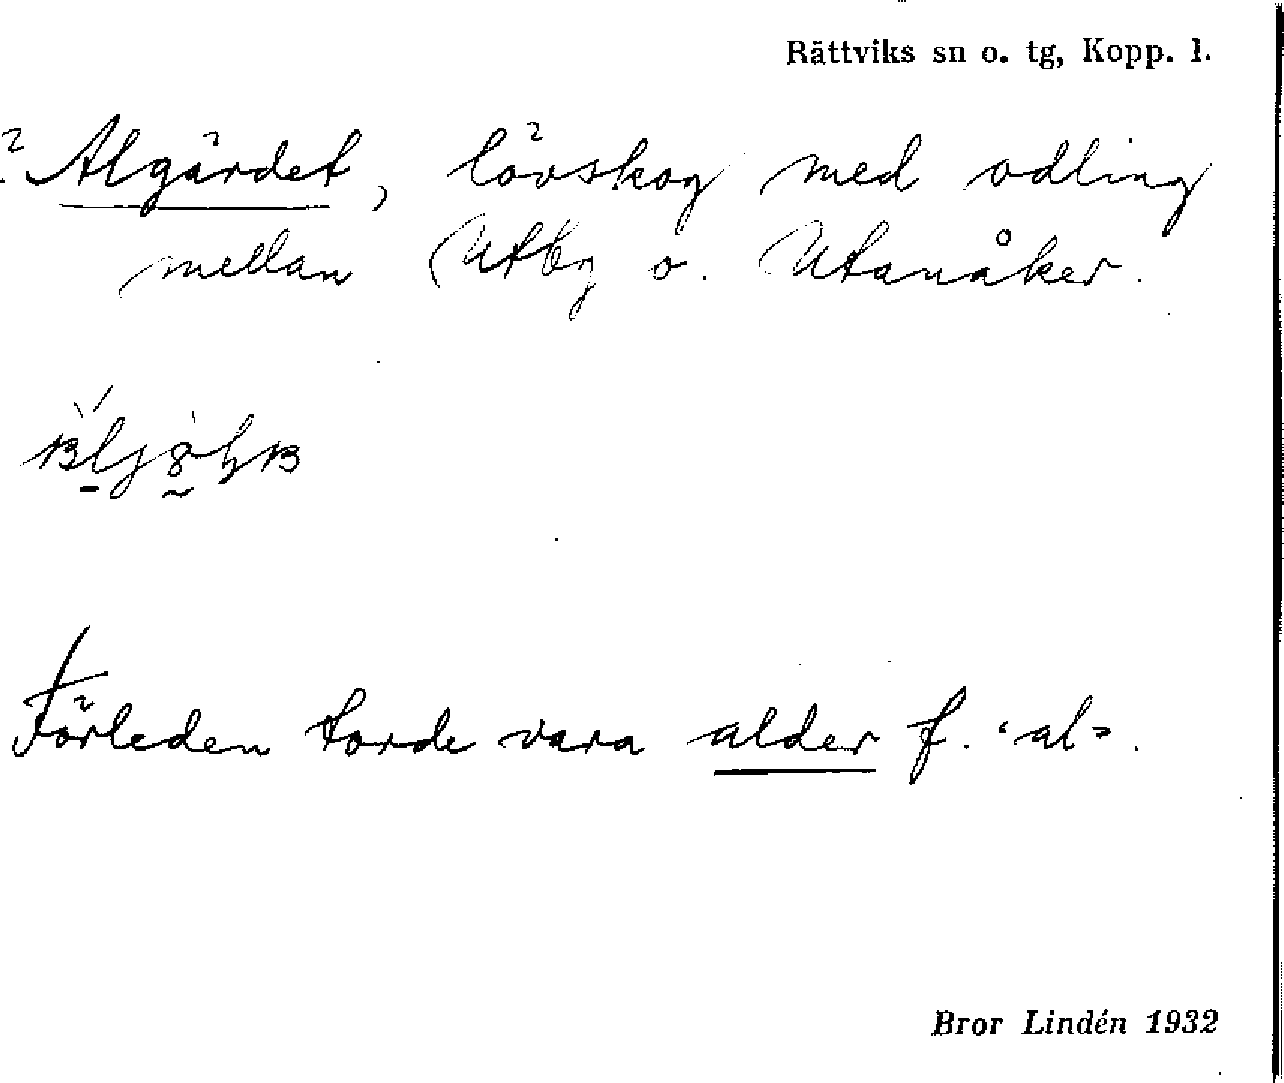 Rättviks sn o. tg, Kopp. l.
? Algärdet, lövskog med odling
mellan Utby o. Utanåker.
Förleden torde vara alder f. 'al'.
Bror Lindén 1932